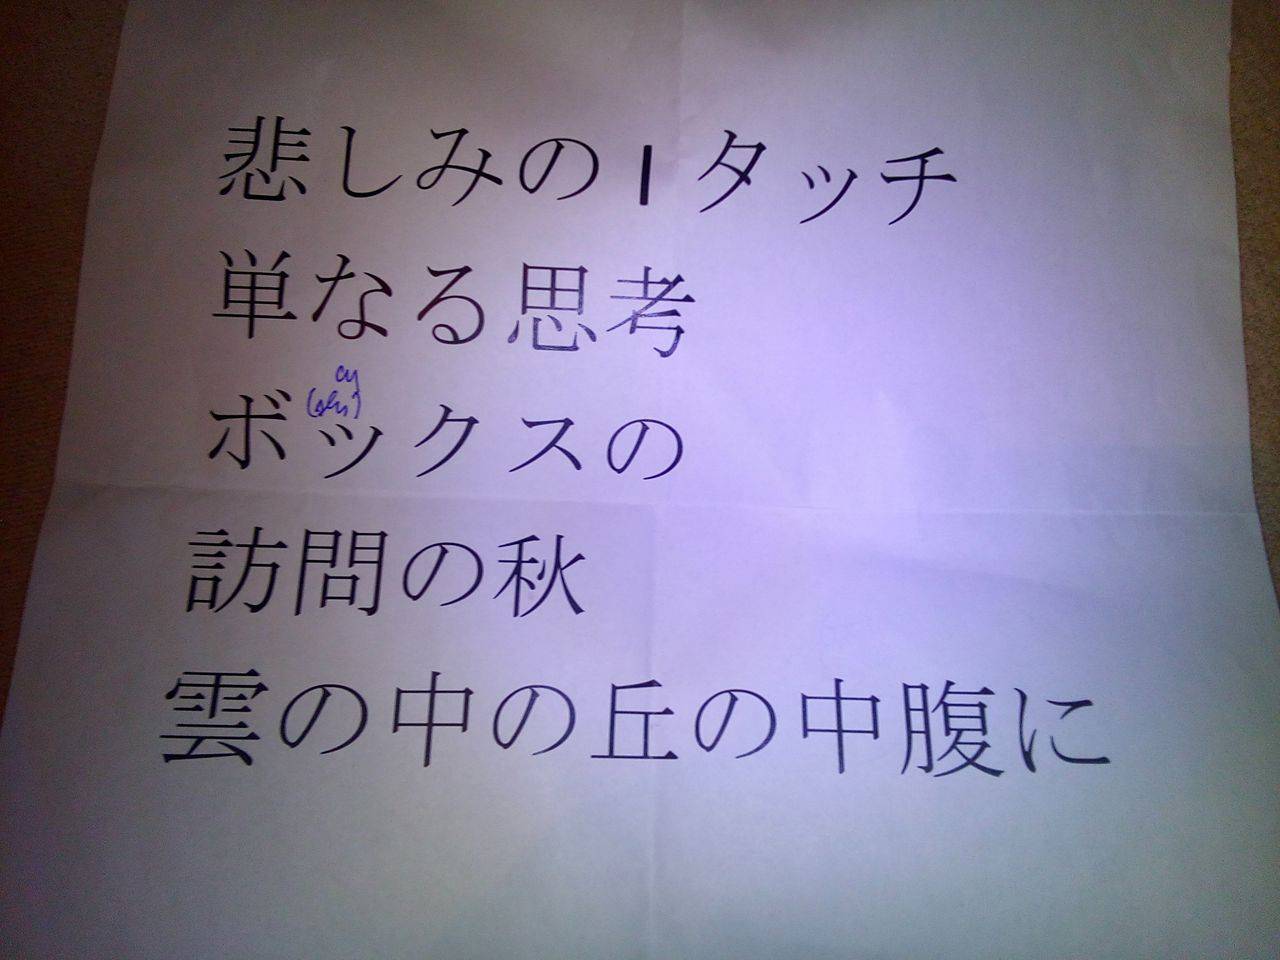 悲しみの1タッチ
単なる思考
ボックスの
訪問の秋
雲の中の丘の中腹に